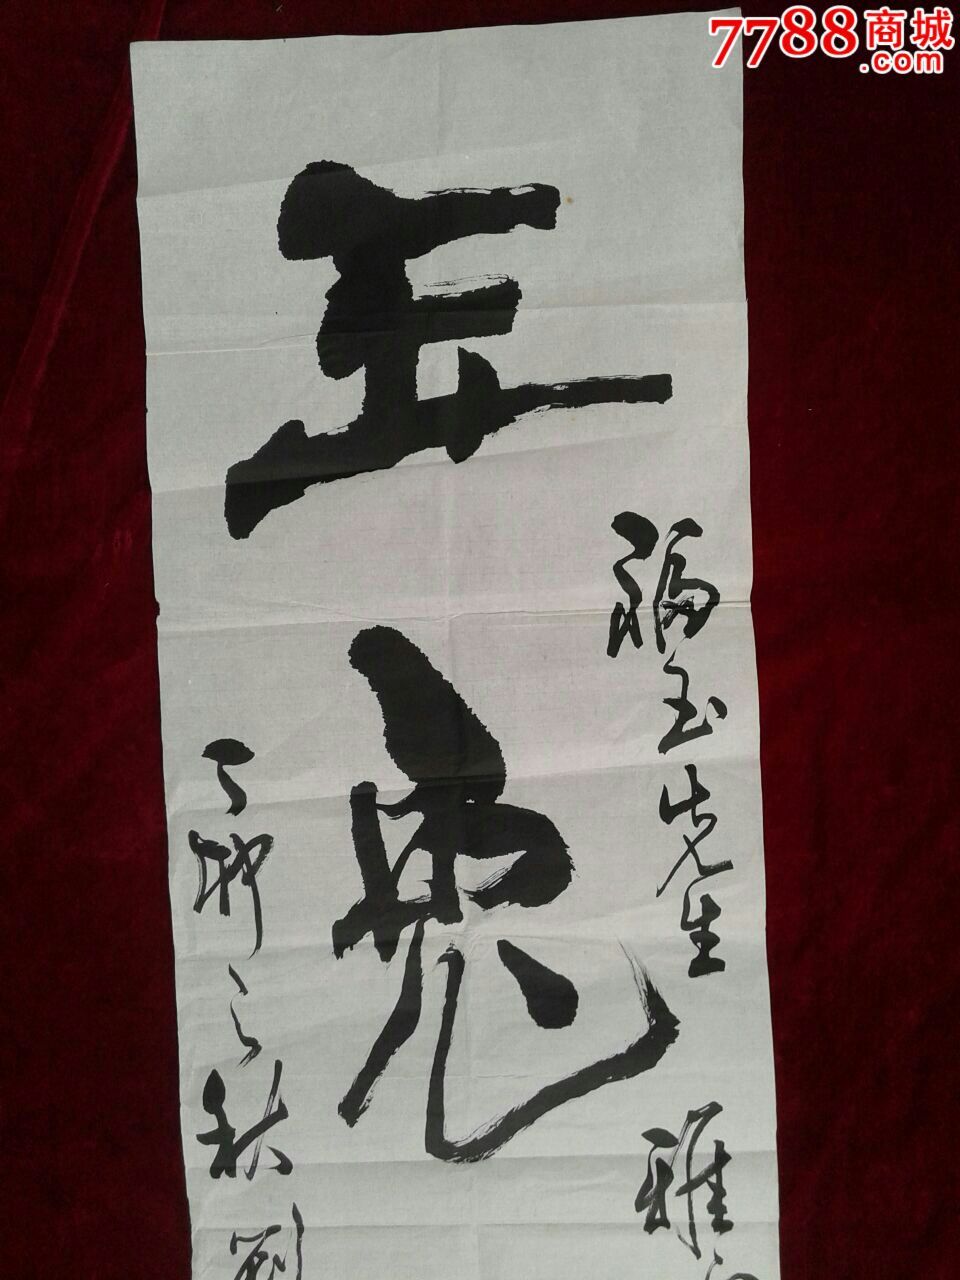 7788商城
.com
玉
兔
福玉先生
雅
丁卯之秋 刘